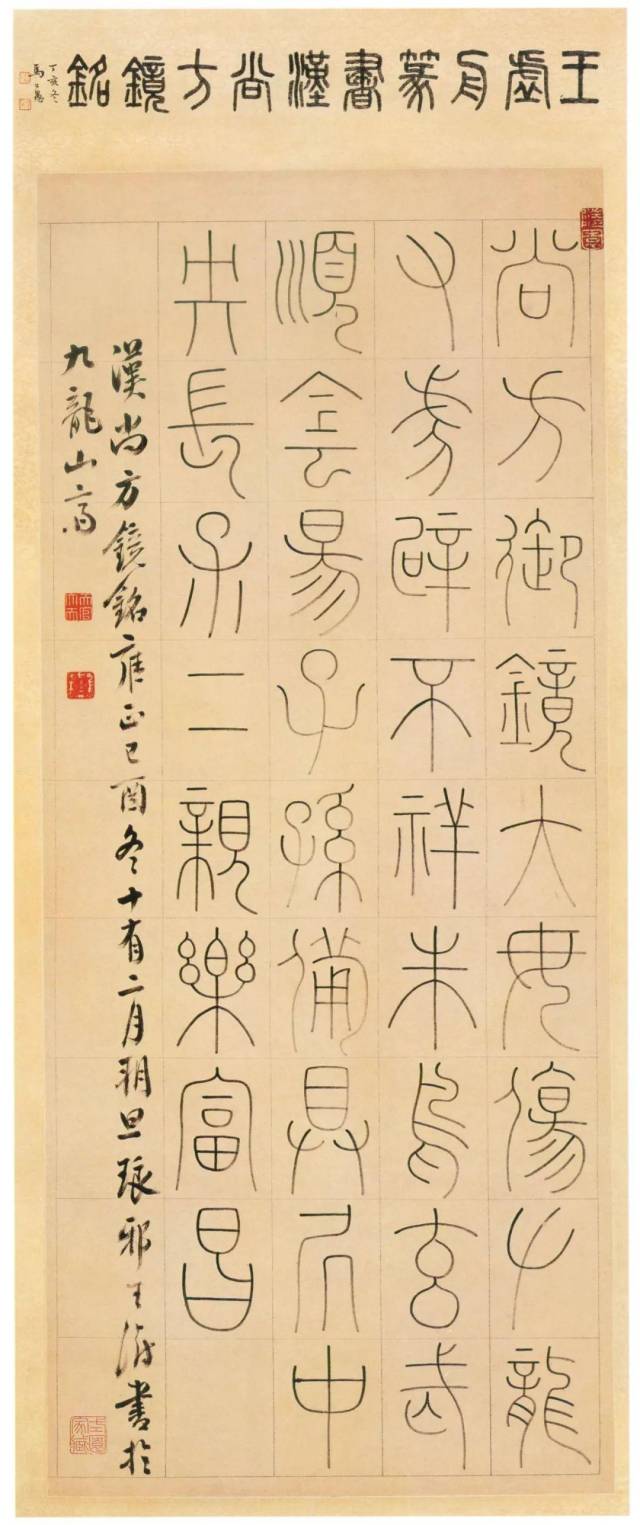 王虛舟篆書漢尚方鏡銘
丁亥冬
馬公愚
尚方御鏡大毋傷左龍
右虎辟不祥朱鳥玄武
順陰陽子孫備具居中
央長保二親樂富昌
漢尚方鏡銘雍正己酉冬十有二月朔旦琅邪王澍書於
九龍山齋